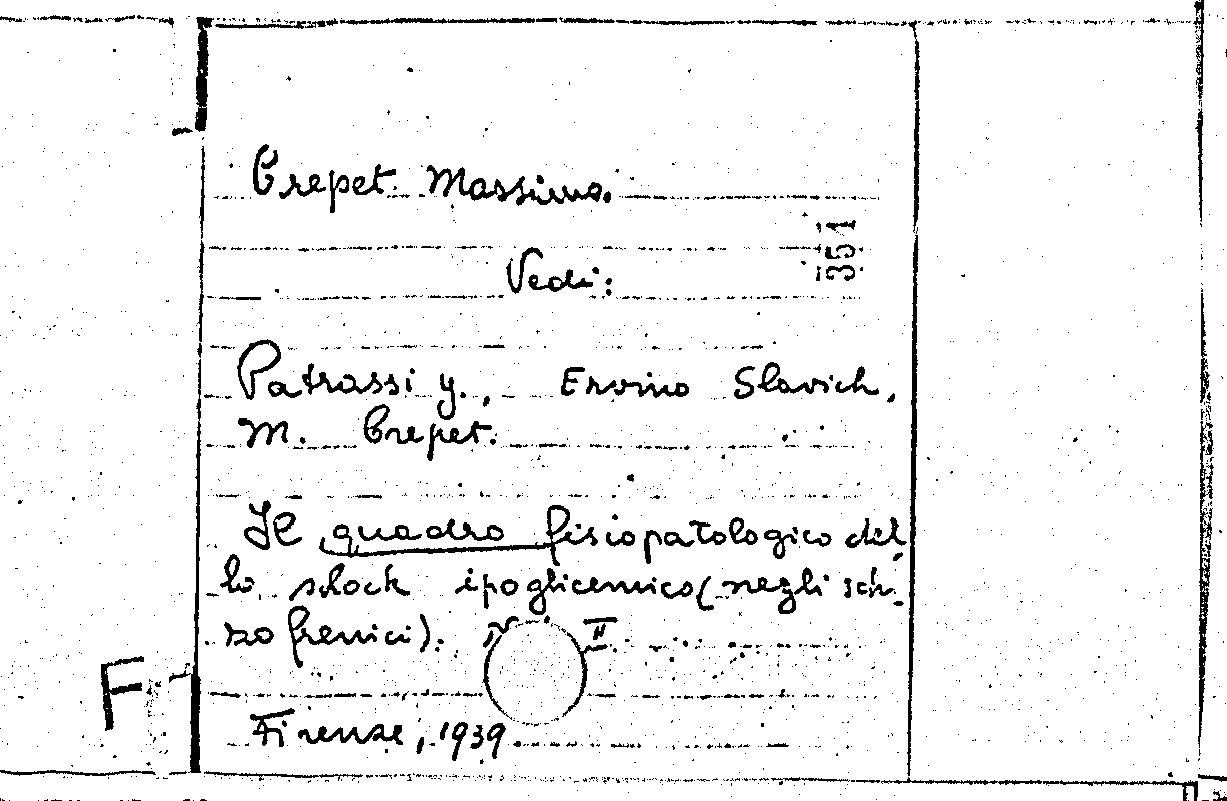 Crepet Massimo.
351
Vedi:
Patrassi G., Ervino Slavich,
M. Crepet.
Il quadro fisiopatologico del-
lo shock ipoglicemico (negli schi-
zofrenici).
II
F
Firenze, 1939